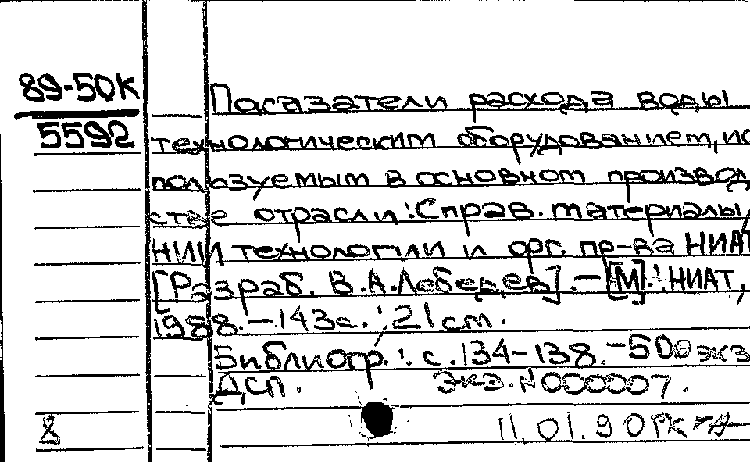 89-50К
5592
Показатели расхода воды
технологическим оборудованием, ис
пользуемым в основном производ
стве отрасли: Справ. материалы/
НИИ технологии и орг. пр-ва НИАТ
[Разраб. В.А.Лебедев]. - [М]: НИАТ,
1988. - 143с.; 21 cm.
Библиогр.: с.134-138. - 500 экз
ДСП. Экз. N000007.
8
11.01.90